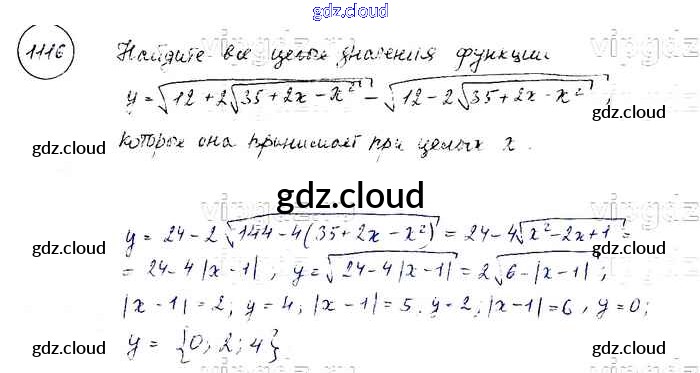 gdz.cloud
1116 Найдите все целые значения функции
y = √(12 + 2√(35 + 2x - x²)) - √(12 - 2√(35 + 2x - x²)),
gdz.cloud gdz.cloud
которые она принимает при целых x.
gdz.cloud
y = 24 - 2√(144 - 4(35 + 2x - x²)) = 24 - 4√(x² - 2x + 1) =
gdz.cloud gdz.cloud
= 24 - 4|x - 1|; y = √(24 - 4|x - 1|) = 2√(6 - |x - 1|);
|x - 1| = 2; y = 4; |x - 1| = 5. y = 2; |x - 1| = 6, y = 0;
y = {0; 2; 4}
gdz.cloud gdz.cloud